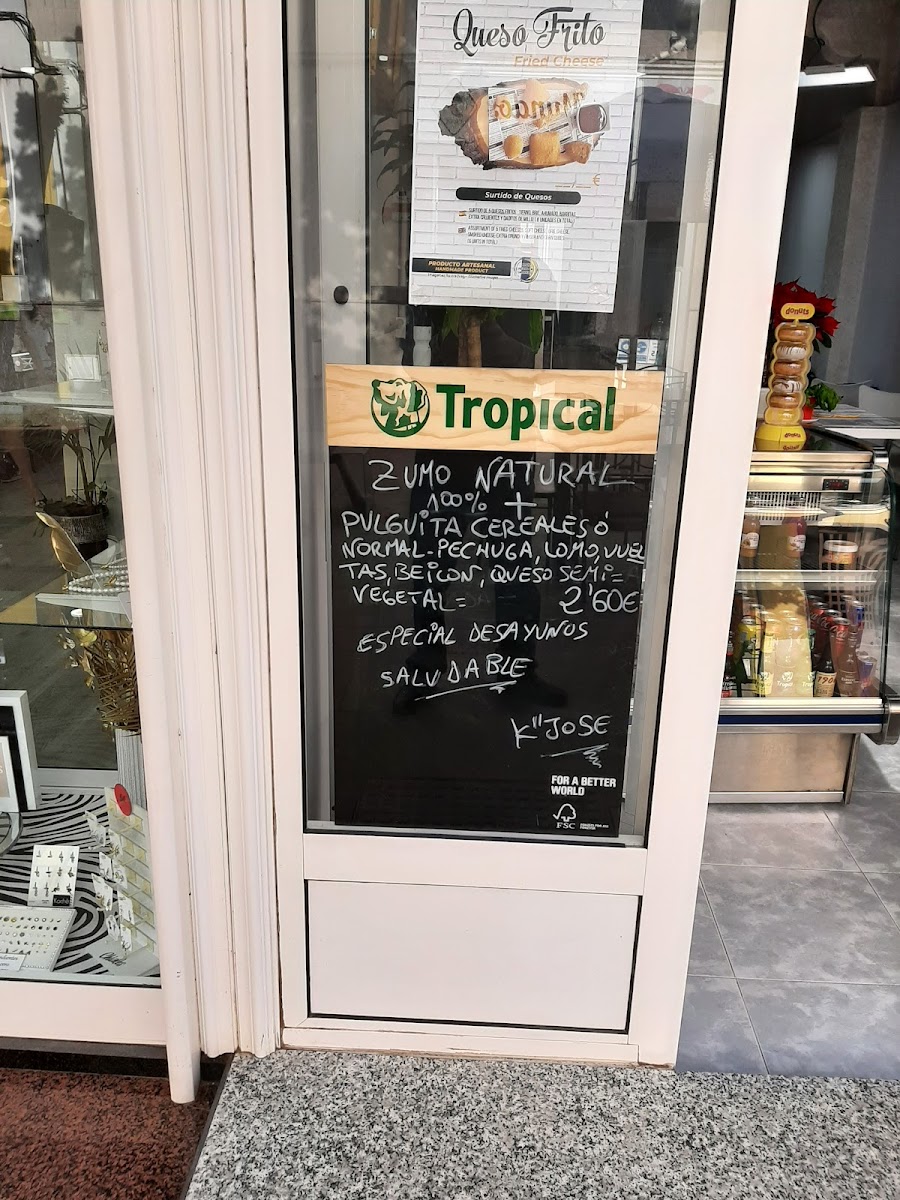 Queso Frito
Fried Cheese
€
Surtido de Quesos
PRODUCTO ARTESANAL
HANDMADE PRODUCT
Tropical
ZUMO NATURAL
100% +
PULGUITA CEREALES Ó
NORMAL-PECHUGA, LOMO, VUEL
TAS, BEICON, QUESO SEMI=
VEGETAL= 2'60€
ESPECIAL DESAYUNOS
SALUDABLE
K"JOSE
FOR A BETTER
WORLD
FSC
donuts
donuts